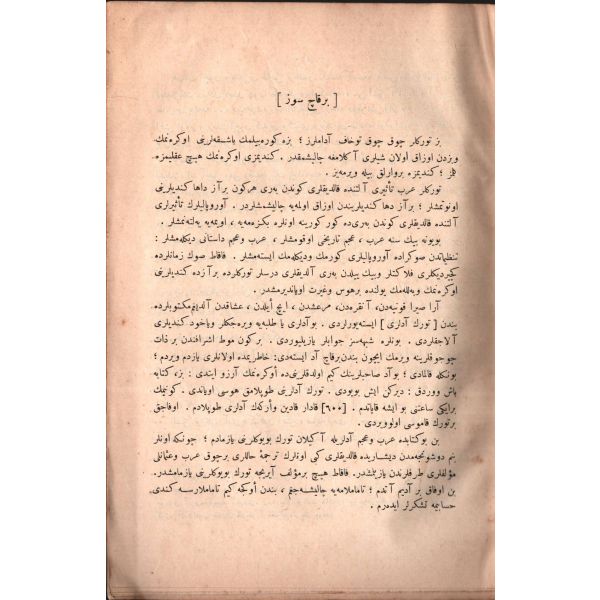 [ برقاچ سوز ]
بز توركلر چوق چوق توخاف آداملرز ؛ بزه كوره بيلمك باشقه‌لرينى اوكره‌نمك
وبزدن اوزاق اولان شيلرى آكلامغه چاليشمقدر . كنديمزى اوكره‌نمك هيچ عقلمزه
كلمز ؛ كنديمزه بروارلق بيله ويرمه‌يز .
توركلر عرب تأثيرى آلتنده قالديقلرى كوندن به‌رى هركون برآز داها كنديلرينى
اونوتمشلر ؛ برآز دها كنديلريندن اوزاق اولمه‌يه چاليشمشلردر . آوروپاليلرك تأثيرلرى
آلتنده قالديقلرى كوندن به‌رى‌ده كور كورينه اونلره بكزه‌مه‌يه ، اويمه‌يه يه‌لته‌نمشلر .
بويونه بيك سنه عرب ، عجم تاريخى اوقومشلر ، عرب وعجم داستانى ديكله‌مشلر ؛
تنظيماتدن صوكراده آوروپاليلرى كورمك وديكله‌مك ايسته‌مشلر . فاقاط صوك زمانلرده
كچيرديكلرى فلاكتلر وبيك بيلدن به‌رى آلديقلرى درسلر توركلرده برآزده كنديلرينى
اوكره‌نمك وبه‌لله‌مك يولنده برهوس وغيرت اويانديرمشدر.
آرا صيرا قونيه‌دن، آنقره‌دن، مرعشدن ، ايچ ايلدن، عشاقدن آلديغم مكتوبلرده
بندن [ تورك آدلرى ] ايسته‌يورلردى . بوآدلرى يا طلبه‌يه ويره‌جكلر وياخود كنديلرى
آلاجقلردى . بونلره شبهه‌سز جوابلر يازيليوردى . بركون موط اشرافندن برذات
چوجوقلرينه ويرمك ايچون بندن برقاچ آد ايسته‌دى؛ خاطريمده اولانلرى يازدم ويردم ؛
بونكله قالمادى ؛ بوآد صاحبلرينك كيم اولدقلرينى‌ده اوكره‌نمك آرزو ايتدى ؛ بز، كتابه
باش ووردق ؛ ديركن ايش بويودى . تورك آدلرينى طوپلامق هوسى اوياندى . كونمك
برايكى ساعتنى بو ايشه قاپاتدم . [٦٠٠] قادار قادين واركك آدلرى طوپلادم . اوفاجق
برتورك قاموسى اولوويردى .
بن بوكتابده عرب وعجم آدلريله آكيلان تورك بويوكلرينى يازمادم ؛ چونكه اونلر
بنم دوشونجه‌مدن ديشاريده قالديقلرى كبى اونلرك ترجمۀ حاللرى برچوق عرب وعثمانلى
مؤلفلرى طرفلرندن يازيلمشدر. فاقاط هيچ برمؤلف آيريجه تورك بويوكلرينى يازمامشدر.
بن اوفاق بر آديم آتدم ؛ تاماملامه‌يه چاليشه‌جغم ، بندن أوكجه كيم تاماملارسه كندى
حسابمه تشكرلر ايده‌رم .